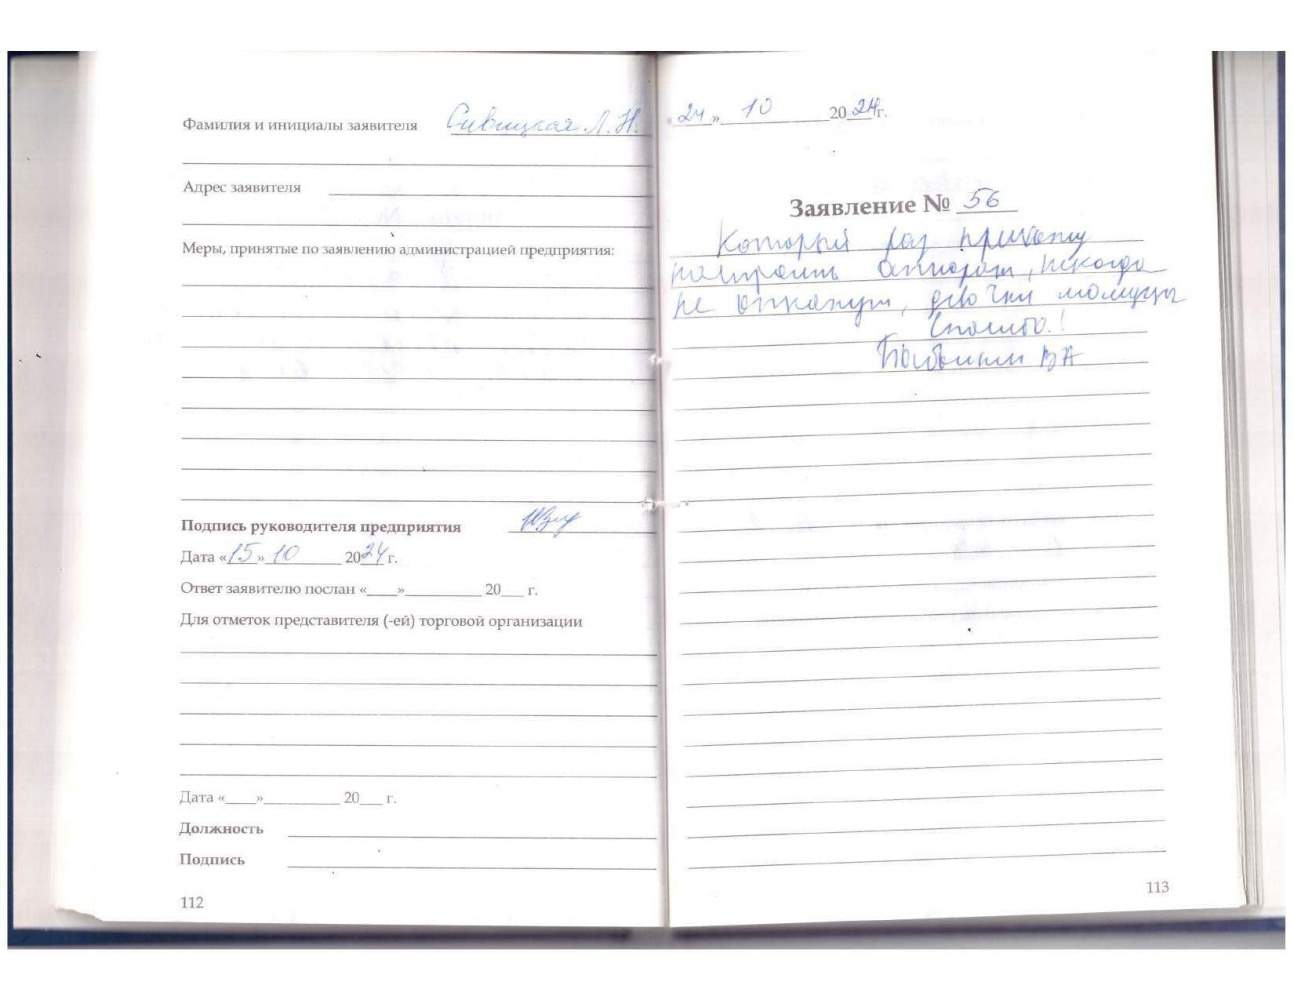 Фамилия и инициалы заявителя Сивицкая Л.Н.
Адрес заявителя
Меры, принятые по заявлению администрацией предприятия:
Подпись руководителя предприятия
Дата «15» 10 2024 г.
Ответ заявителю послан «____»__________ 20___ г.
Для отметок представителя (-ей) торговой организации
Дата «____»__________ 20___ г.
Должность
Подпись
112
«24» 10 2024г.
Заявление № 56
Который раз прихожу
настроить аппарат, никогда
не откажут, девочки молодцы
Спасибо!
ВА
113